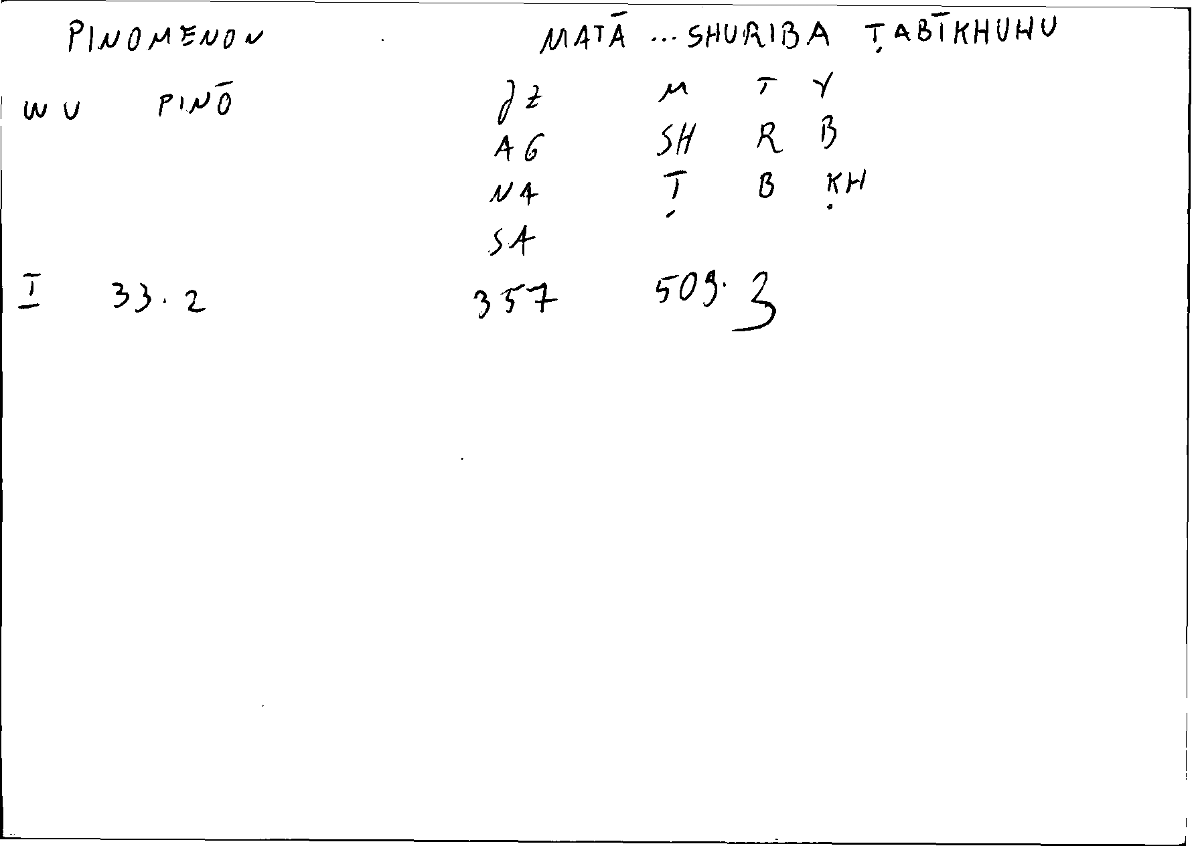 PINOMENON MATĀ ... SHURIBA ṬABĪKHUHU
WU PINŌ JZ M T Y
AG SH R B
NA Ṭ B ḲH
SA
I 33.2 357 509.3